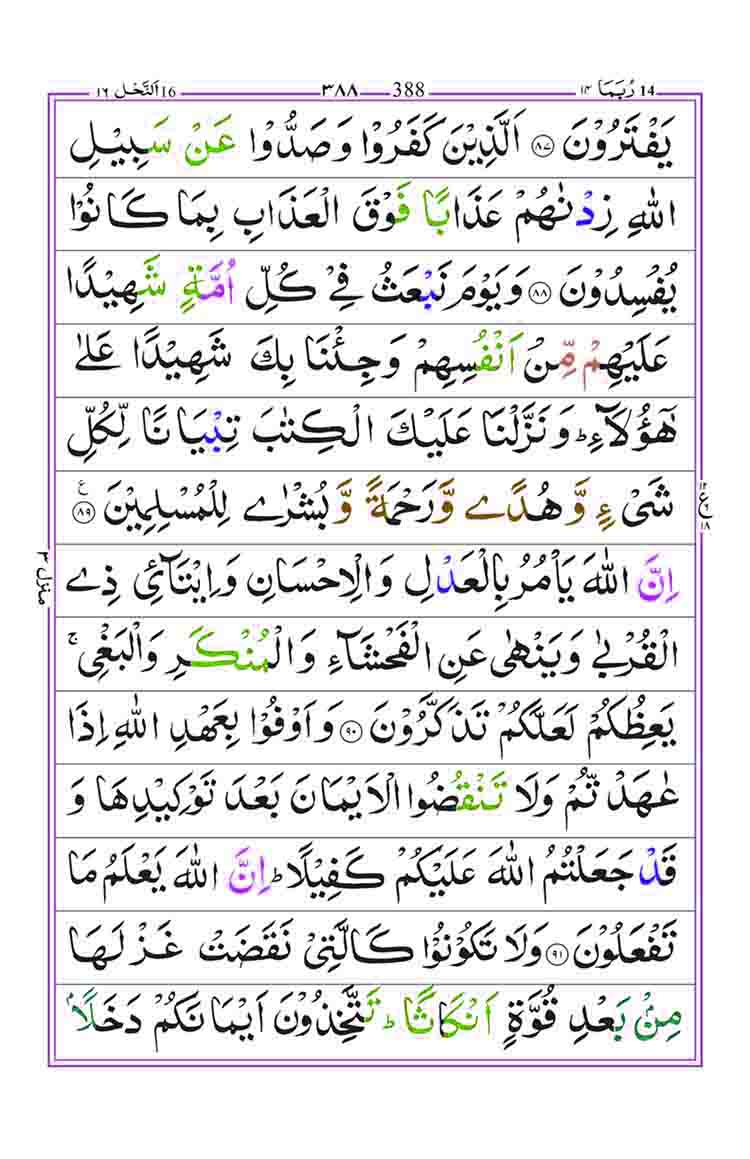 14 رُبَمَا ١٤ 388 ٣٨٨ 16 اَلنَّحْل ١٦
يَفْتَرُوْنَ ۝٨٧ اَلَّذِيْنَ كَفَرُوْا وَصَدُّوْا عَنْ سَبِيْلِ
اللّٰهِ زِدْنٰهُمْ عَذَابًا فَوْقَ الْعَذَابِ بِمَا كَانُوْا
يُفْسِدُوْنَ ۝٨٨ وَيَوْمَ نَبْعَثُ فِيْ كُلِّ اُمَّةٍ شَهِيْدًا
عَلَيْهِمْ مِّنْ اَنْفُسِهِمْ وَجِئْنَا بِكَ شَهِيْدًا عَلٰى
هٰٓؤُلَآءِ ؕ وَنَزَّلْنَا عَلَيْكَ الْكِتٰبَ تِبْيَانًا لِّكُلِّ
شَيْءٍ وَّهُدًى وَّرَحْمَةً وَّبُشْرٰى لِلْمُسْلِمِيْنَ ۝٨٩ ع
١٢ ع ١٨
اِنَّ اللّٰهَ يَاْمُرُ بِالْعَدْلِ وَالْاِحْسَانِ وَاِيْتَآئِ ذِى
منزل ٣
الْقُرْبٰى وَيَنْهٰى عَنِ الْفَحْشَآءِ وَالْمُنْكَرِ وَالْبَغْيِ ۚ
يَعِظُكُمْ لَعَلَّكُمْ تَذَكَّرُوْنَ ۝٩٠ وَاَوْفُوْا بِعَهْدِ اللّٰهِ اِذَا
عٰهَدْتُّمْ وَلَا تَنْقُضُوا الْاَيْمَانَ بَعْدَ تَوْكِيْدِهَا وَ
قَدْ جَعَلْتُمُ اللّٰهَ عَلَيْكُمْ كَفِيْلًا ؕ اِنَّ اللّٰهَ يَعْلَمُ مَا
تَفْعَلُوْنَ ۝٩١ وَلَا تَكُوْنُوْا كَالَّتِيْ نَقَضَتْ غَزْلَهَا
مِنْۢ بَعْدِ قُوَّةٍ اَنْكَاثًا ؕ تَتَّخِذُوْنَ اَيْمَانَكُمْ دَخَلًاۢ